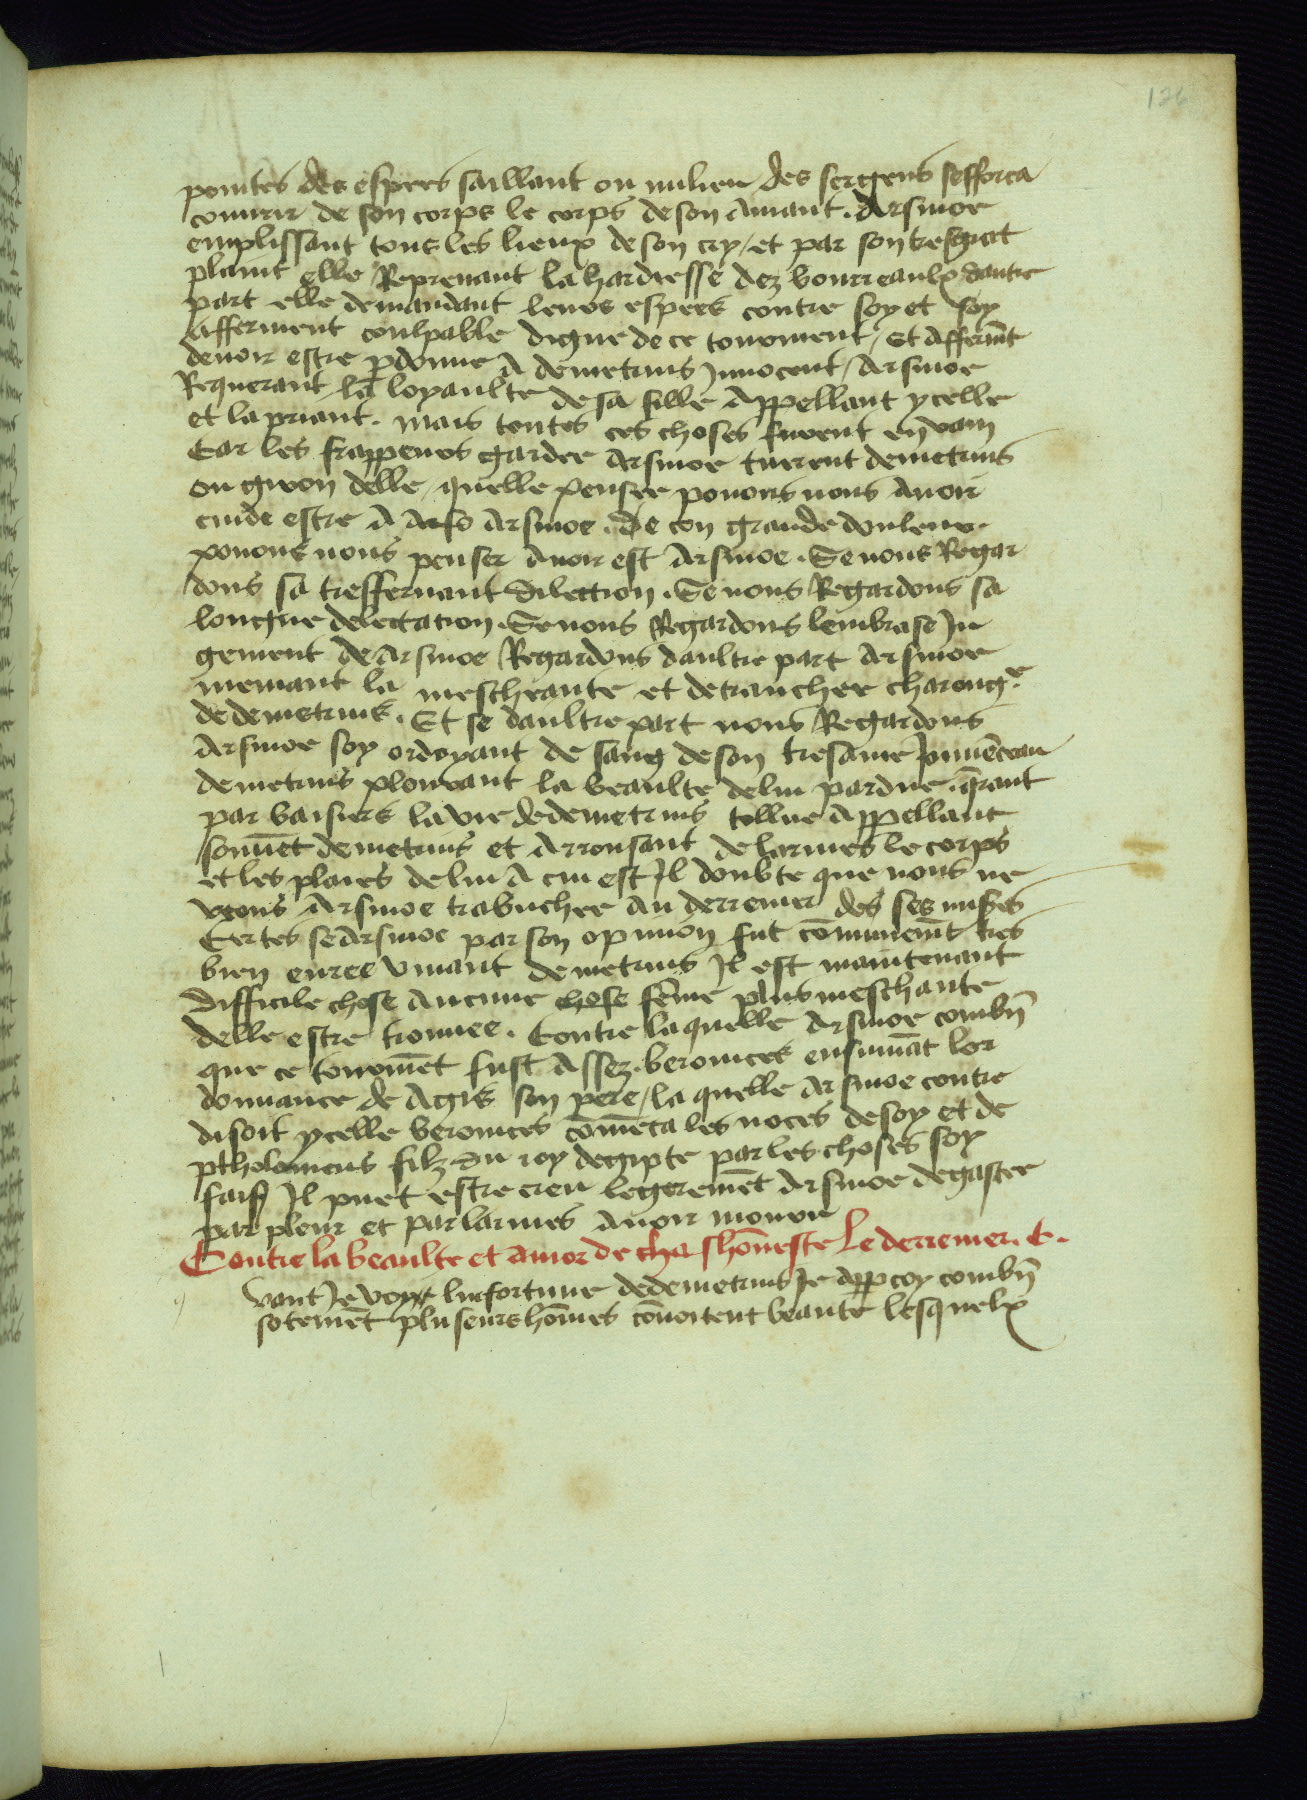 126
pointes des espees saillant ou milieu des sergens sefforca
couurir de son corps le corps de son Amant. Arsinoe
emplissant tous les lieux de son cry / et par son tresgrāt
plaint elle Reprenant la hardiesse dez bourreaulx dautre
part elle demandant leurs espees contre soy et soy
afferment coulpable digne de ce tourment / Et Affermāt
deuoir estre pdonne A demetrius Innocent / Arsinoe
Requerant la loyaulte de sa fille Appellant ycelle
et la priant. Mais toutes ces choses furent en vain
Car les frappeurs garder Arsinoe tuerent demetrius
ou giron delle / quelle pensee pouons nous Auoir
cuide estre A Arsinoe. De con grande douleur
pouons nous penser Auoir est Arsinoe. Se nous Regar
dons sa tresferuant dilection. Se nous Regardons sa
longue delectation. Se nous Regardons lembrase Iu
gement de Arsinoe Regardons daultre part Arsinoe
menant la mescheante et detranchee charongne
de demetrius. Et se daultre part nous Regardons
Arsinoe soy ordoyant de sang de son tresame Iouuēceau
demetrius plourant la beaulte de lui pardue. qrant
par baisiers la vie de demetrius tollue Appellant
souuēt demetrius et Arrousant de larmes le corps
et les plaies de lui A cui est Il doubte que nous ne
veons Arsinoe trabucher Au derrenier des ses
Certes se Arsinoe par son opinion fut cōmunemēt tres
bien euree viuant demetrius Il est maintenant
difficile chose Aucune chose fēme plus meschante
delle estre trouuee. Contre laquelle Arsinoe combiē
que ce tourmēt fust Assez. beronices ensuiuāt lor
donnance de Agis son pere / la quelle Arsinoe contre
disoit ycelle beronices cōmēca les noces de soy et de
ptholomeus filz du roy degipte par les choses soy
fais Il puet estre creu legeremēt Arsinoe degastee
par pleur et par larmes Auoir mouru
Contre la beaulte et Amor deshōneste Le derrenier. C.
vant Ie voy linfortune de demetrius Ie Appcoy combiē
sotemēt pluseurs hōmes cōuoitent beaute lesquelx